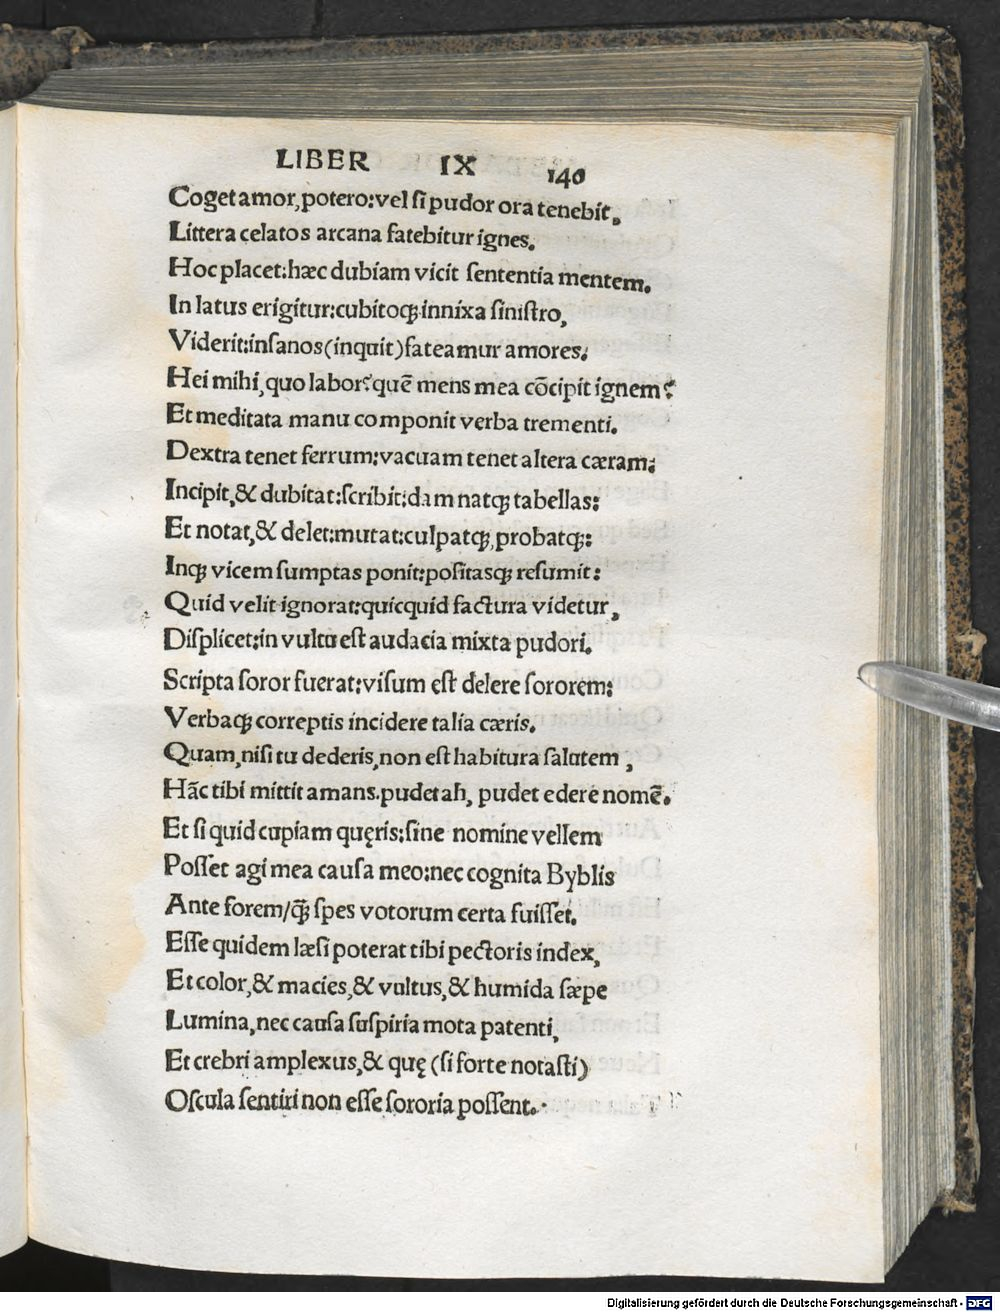 LIBER IX 140
Coget amor, potero: vel ſi pudor ora tenebit,
Littera cęlatos arcana fatebitur ignes.
Hoc placet: hæc dubiam vicit ſententia mentem.
In latus erigitur: cubitoq; innixa ſiniſtro,
Viderit: inſanos (inquit) fateamur amores.
Hei mihi, quo labor? quē mens mea cōcipit ignem?
Et meditata manu componit verba trementi.
Dextra tenet ferrum: vacuam tenet altera cæram:
Incipit, & dubitat: ſcribit: damnatq; tabellas:
Et notat, & delet: mutat: culpatq;, probatq;:
Inq; vicem ſumptas ponit: poſitasq; reſumit:
Quid velit ignorat: quicquid factura videtur,
Diſplicet: in vultu eſt audacia mixta pudori.
Scripta ſoror fuerat: viſum eſt delere ſororem:
Verbaq; correptis incidere talia cæris.
Quam, niſi tu dederis, non eſt habitura ſalutem,
Hāc tibi mittit amans. pudet ah, pudet edere nomē.
Et ſi quid cupiam quęris: ſine nomine vellem
Poſſet agi mea cauſa meo: nec cognita Byblis
Ante forem/q̄ ſpes votorum certa fuiſſet.
Eſſe quidem læſi poterat tibi pectoris index,
Et color, & macies, & vultus, & humida ſæpe
Lumina, nec cauſa ſuſpiria mota patenti,
Et crebri amplexus, & quę (ſi forte notaſti)
Oſcula ſentiri non eſſe ſororia poſſent.
Digitalisierung gefördert durch die Deutsche Forschungsgemeinschaft - DFG